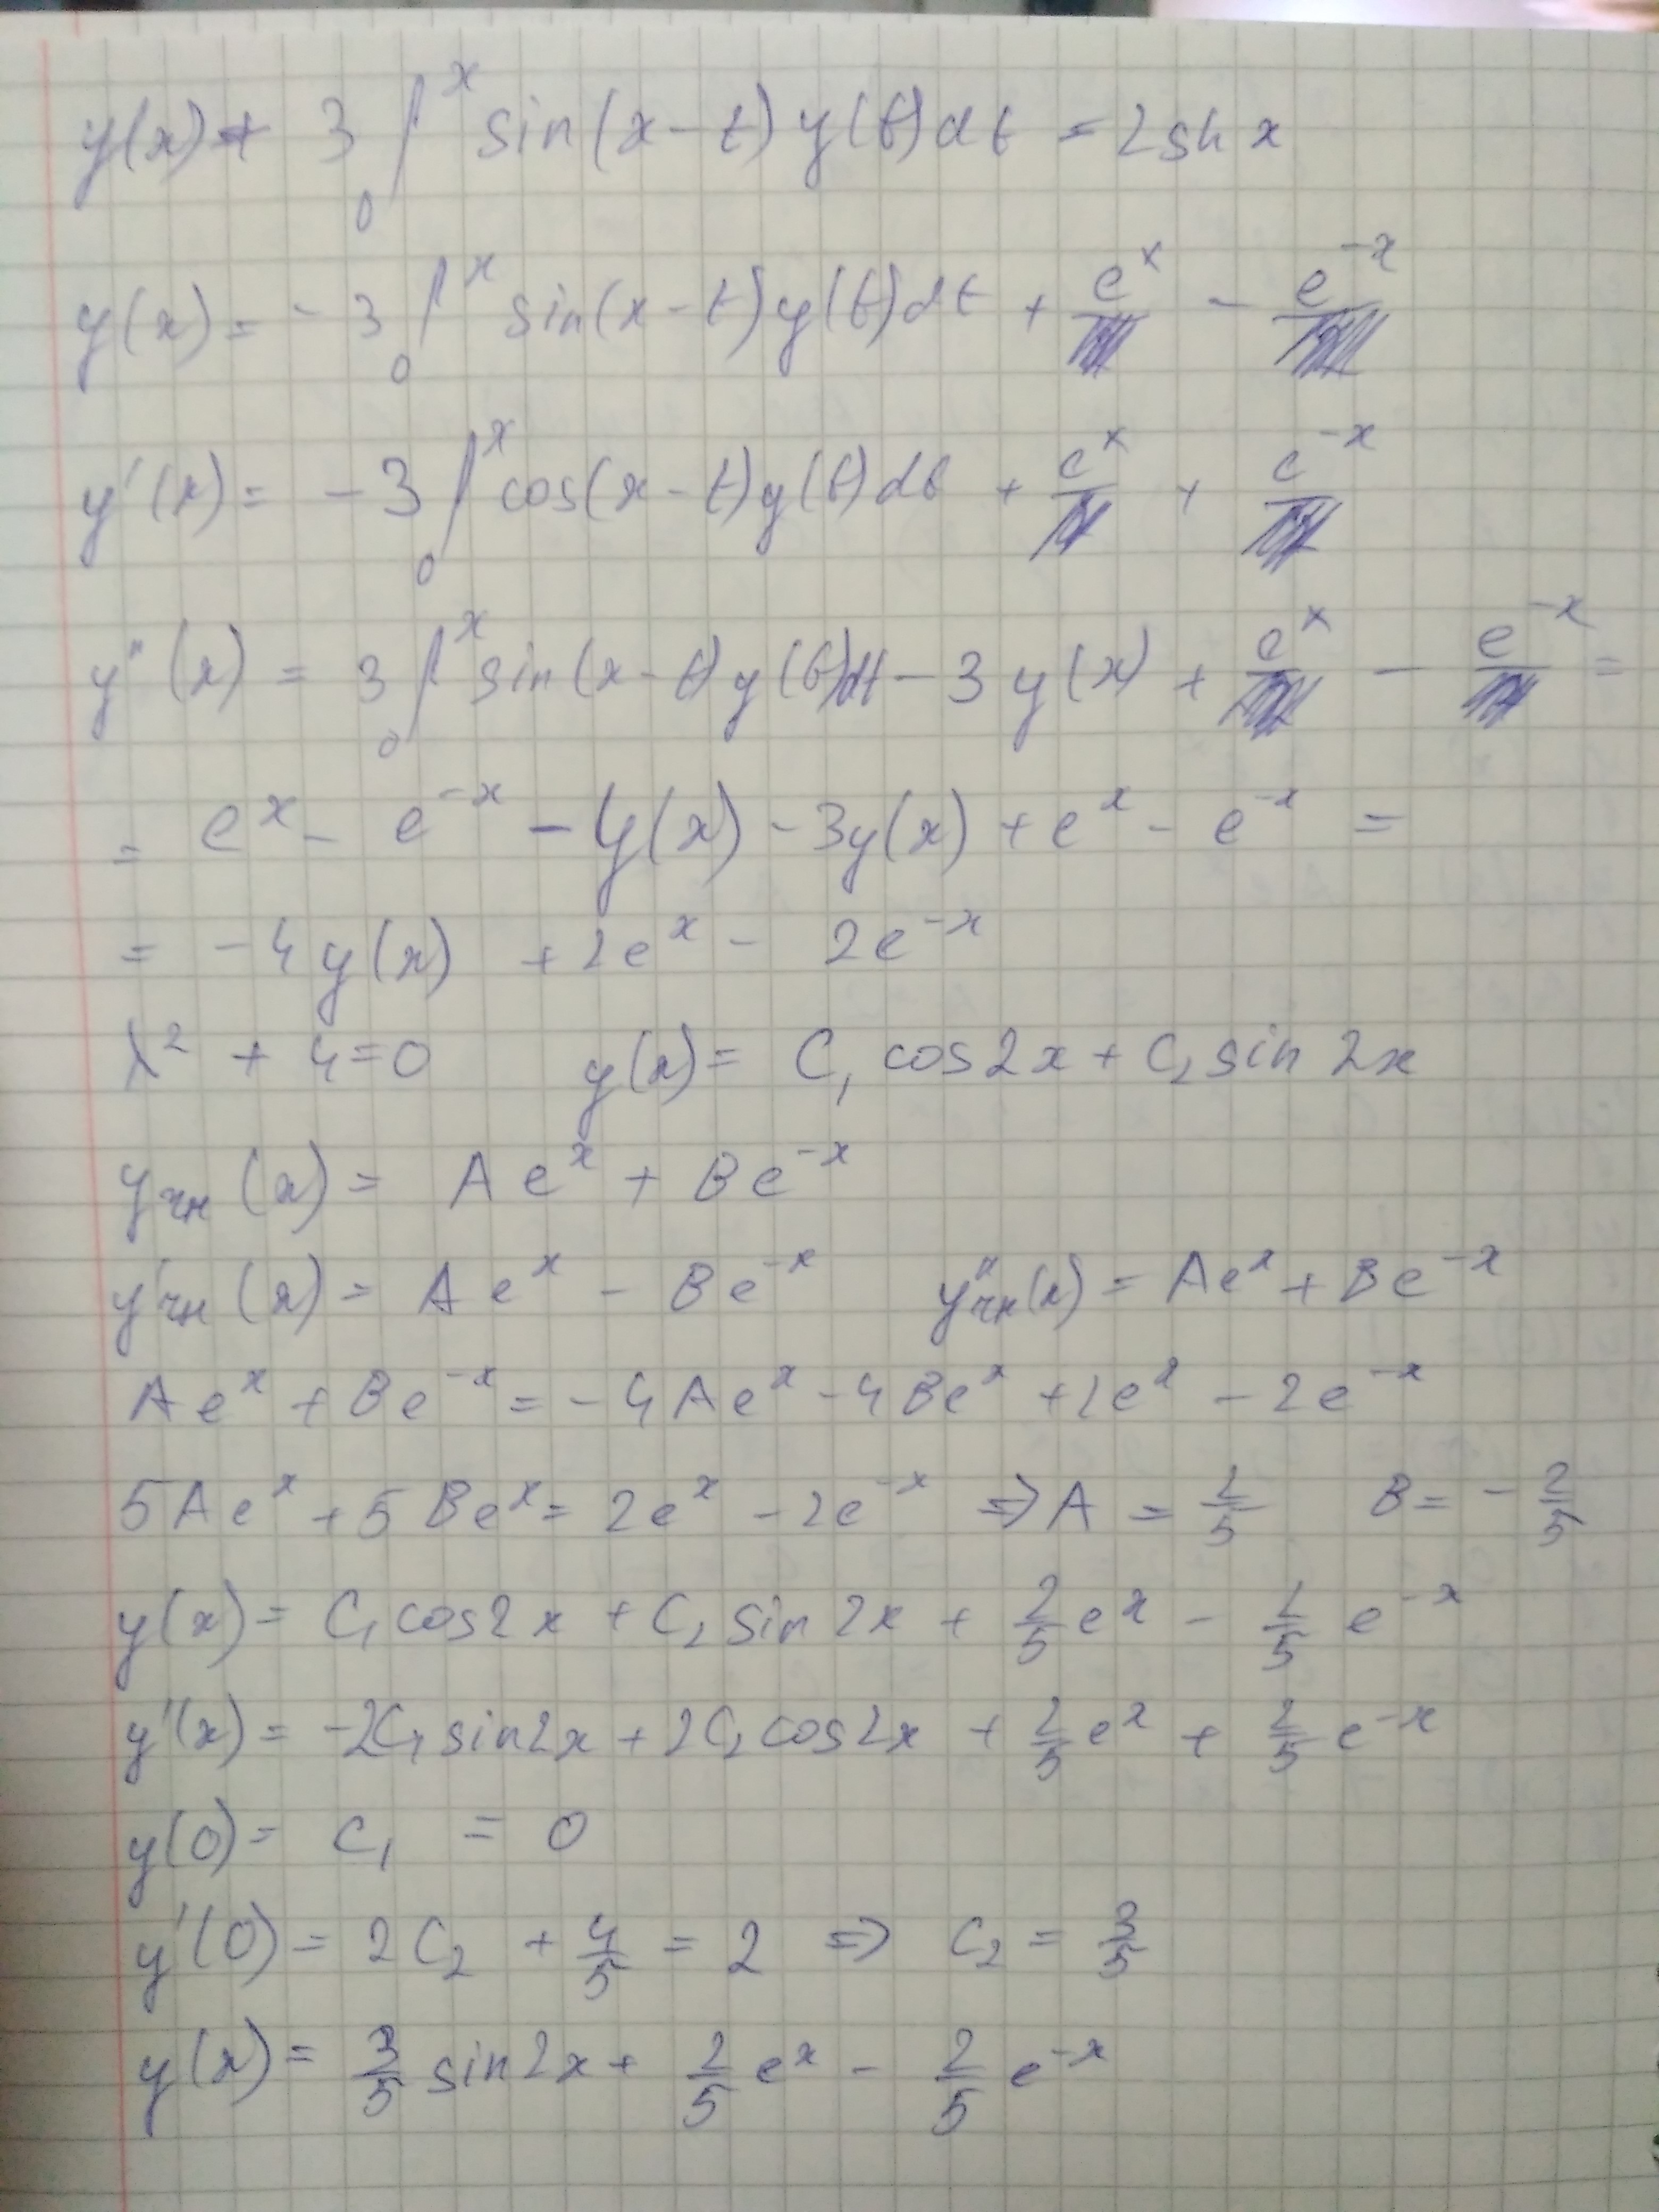 y(x) + 3 ∫₀ˣ sin(x-t) y(t)dt = 2sh x
y(x) = -3 ∫₀ˣ sin(x-t)y(t)dt + eˣ - e⁻ˣ
y'(x) = -3 ∫₀ˣ cos(x-t)y(t)dt + eˣ + e⁻ˣ
y''(x) = 3 ∫₀ˣ sin(x-t)y(t)dt - 3y(x) + eˣ - e⁻ˣ =
= eˣ - e⁻ˣ - y(x) - 3y(x) + eˣ - e⁻ˣ =
= -4y(x) + 2eˣ - 2e⁻ˣ
λ² + 4 = 0 y(x) = C₁ cos2x + C₂ sin 2x
yчн(x) = Aeˣ + Be⁻ˣ
y'чн(x) = Aeˣ - Be⁻ˣ y''чн(x) = Aeˣ + Be⁻ˣ
Aeˣ + Be⁻ˣ = -4Aeˣ - 4Beˣ + 2eˣ - 2e⁻ˣ
5Aeˣ + 5Beˣ = 2eˣ - 2e⁻ˣ ⇒ A = 2/5 B = -2/5
y(x) = C₁cos2x + C₂sin2x + 2/5 eˣ - 2/5 e⁻ˣ
y'(x) = -2C₁sin2x + 2C₂cos2x + 2/5 eˣ + 2/5 e⁻ˣ
y(0) = C₁ = 0
y'(0) = 2C₂ + 4/5 = 2 ⇒ C₂ = 3/5
y(x) = 3/5 sin2x + 2/5 eˣ - 2/5 e⁻ˣ